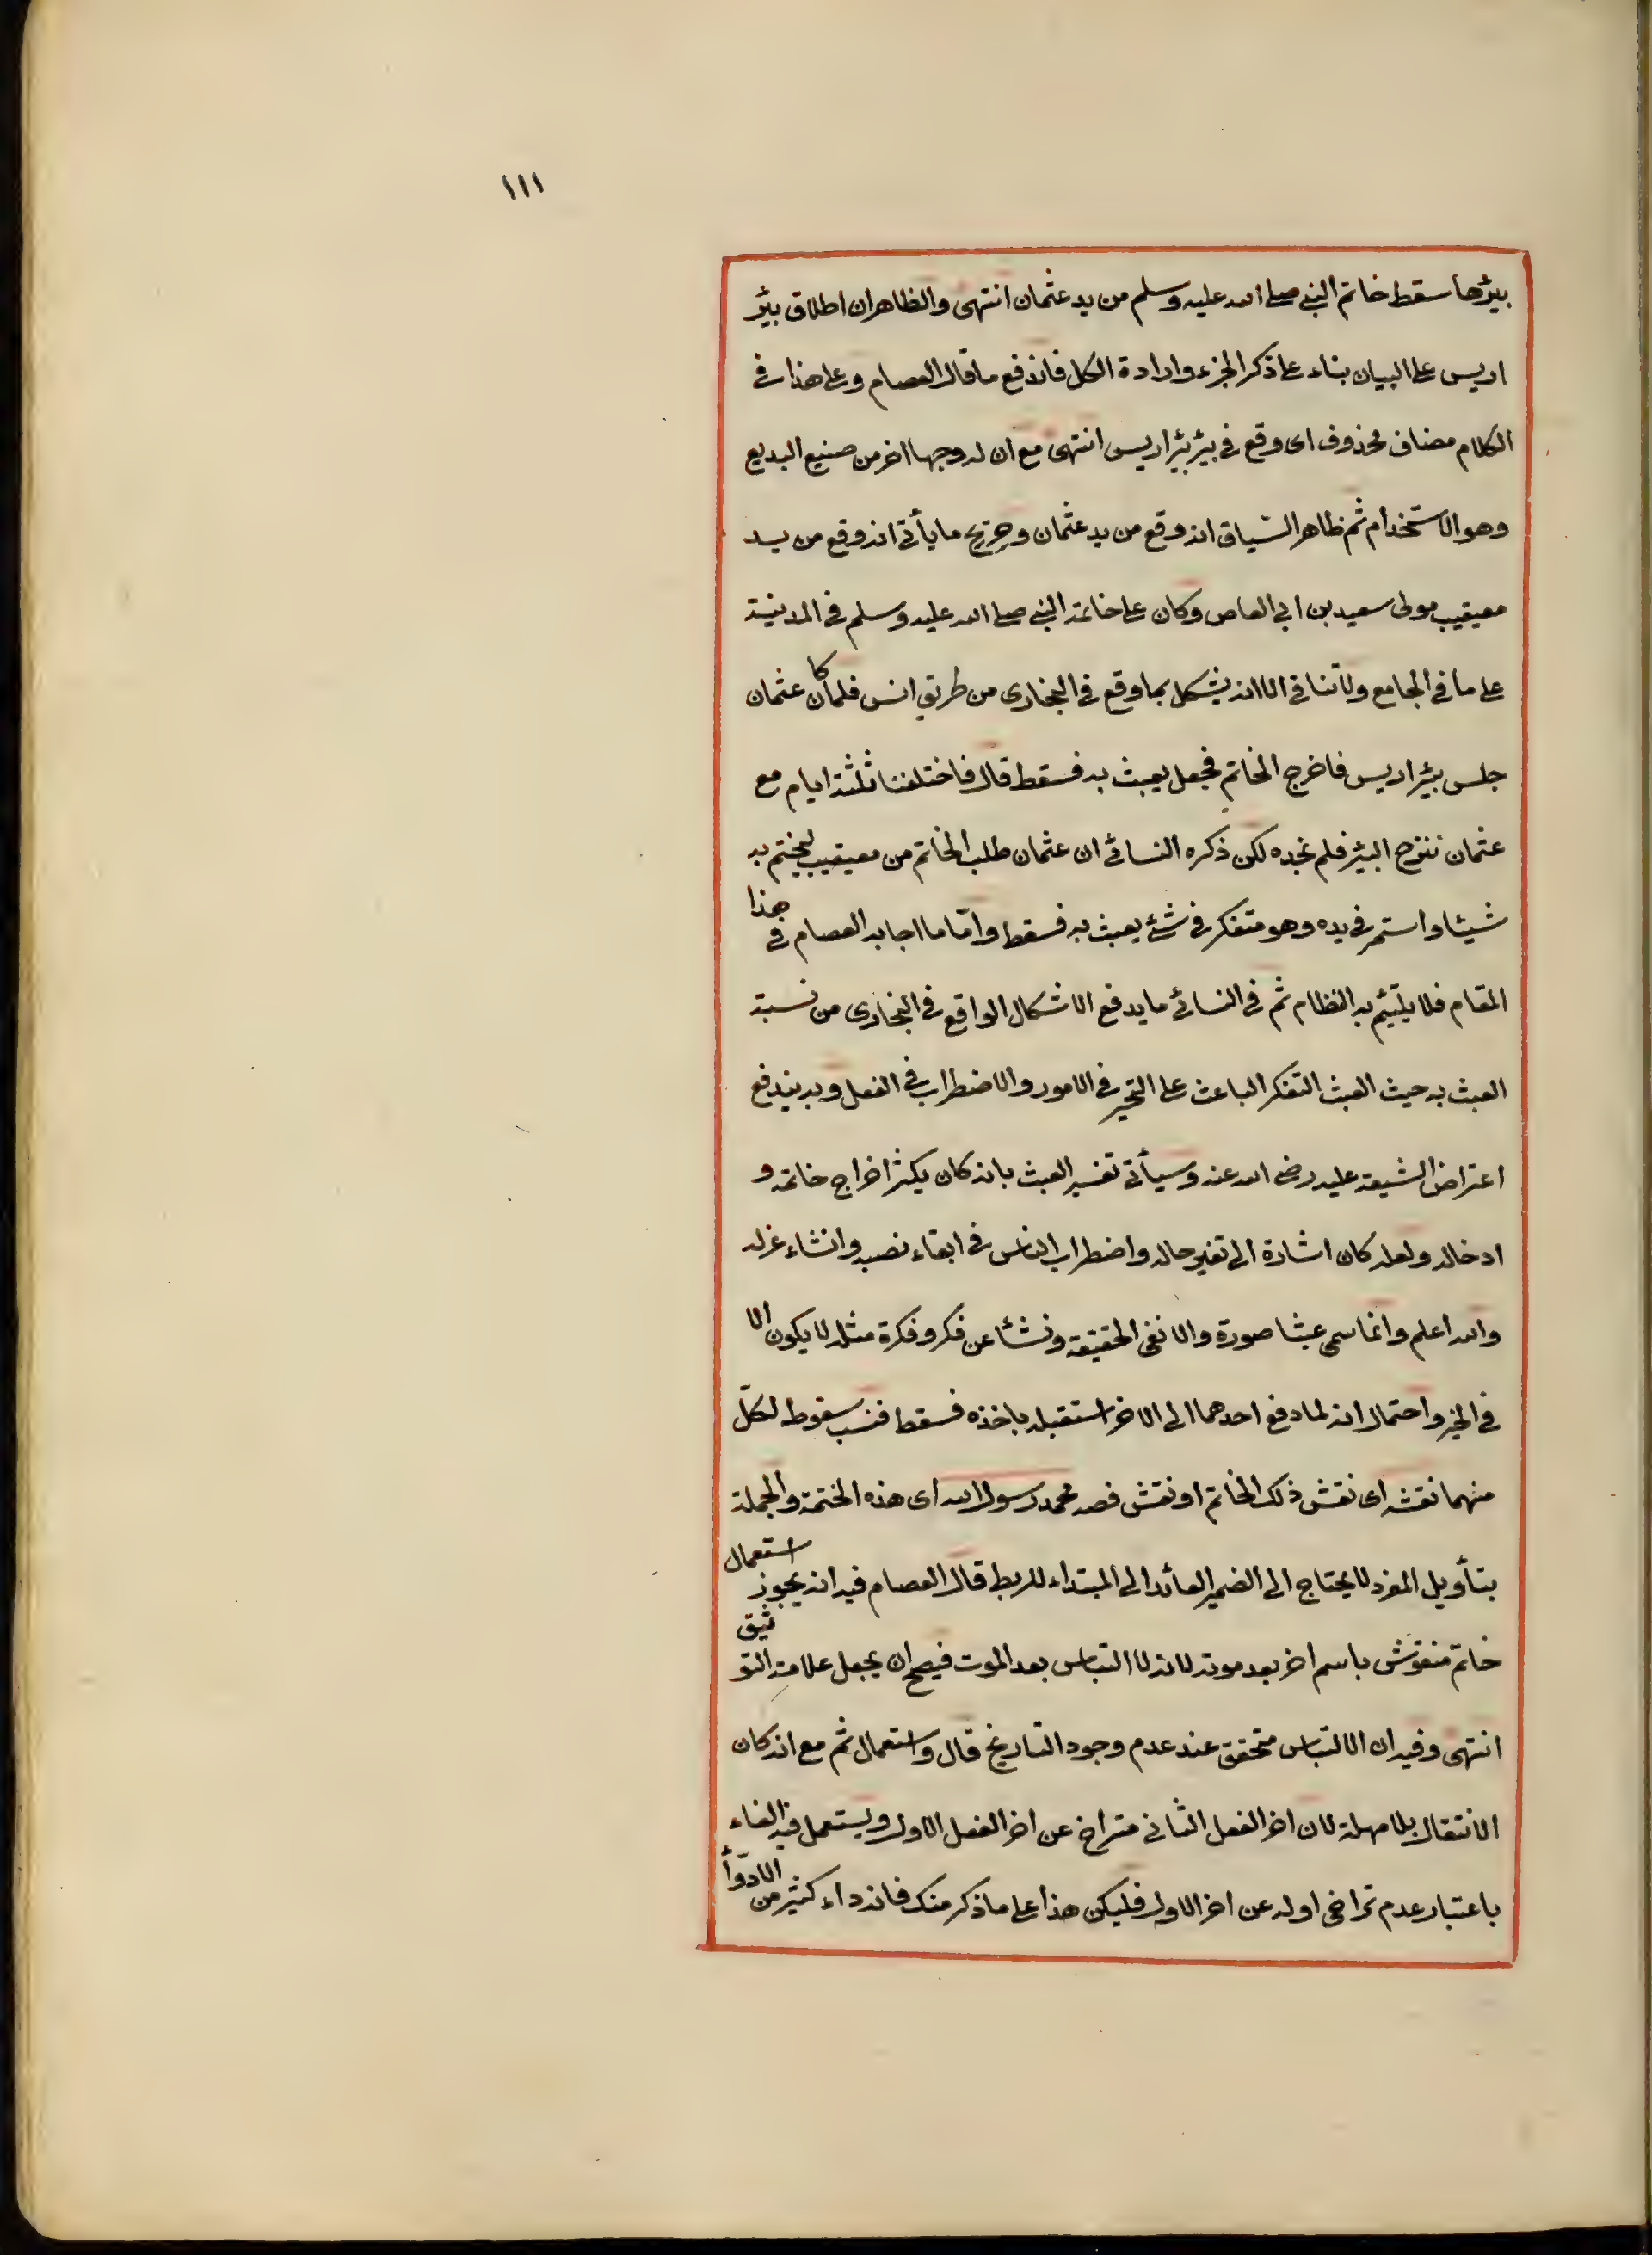 ١١١
بئرها سقط خاتم النبي صلى الله عليه وسلم من يد عثمان انتهى والظاهر ان اطلاق بئر
اريس على البيان بناء على ذكر الجزء وارادة الكل فاندفع ما قال العصام وعلى هذا في
الكلام مضاف محذوف اى وقع في بئر بئر اريس انتهى مع ان له وجها اخر من صنيع البديع
وهو الاستخدام ثم ظاهر السّياق انه وقع من يد عثمان وصريح ما يأتى انه وقع من يد
معيقيب مولى سعيد بن ابي العاص وكان على خاتمه النبي صلى الله عليه وسلم في المدينة
على ما في الجامع ولا تنافي الا انه يشكل بما وقع في البخارى من طريق انس فلما كان عثمان
جلس بئر اريس فاخرج الخاتم فجعل يعبث به فسقط قال فاختلفنا ثلثة ايام مع
عثمان ننزح البئر فلم نجده لكن ذكره النسائي ان عثمان طلب الخاتم من معيقيب ليختم به
شيئا واستمر في يده وهو متفكر في شئ يعبث به فسقط وامّا ما اجاب به العصام في هذا
المقام فلا يلتئم به النظام ثم في النسائي ما يدفع الاشكال الواقع في البخارى من نسبة
العبث به حيث العبث التفكر الباعث على التحير في الامور والاضطراب في الفعل وبه يندفع
اعتراض الشيعة عليه رضى الله عنه وسيأتى تفسير العبث بانه كان يكثر اخراج خاتمه و
ادخاله ولعله كان اشارة الى تغير حاله واضطراب الناس في ابقاء نصبه وانشاء عزله
والله اعلم وانما سمى عبثا صورة والا ففي الحقيقة ونشئا عن فكر وفكرة مثله لا يكون الا
في الخير واحتمال انه لما دفع احدهما الى الاخر استقبله باخذه فسقط فنسب سقوطه لكلّ
منهما نقشه اى نقش ذلك الخاتم او نقش فصه محمد رسول الله اى هذه الختمة والجملة
بتأويل المفرد لا يحتاج الى الضمير العائد الى المبتداء للربط قال العصام فيه انه يجوز استعمال
خاتم منقوش باسم اخر بعد موته لانه لا التباس بعد الموت فيصح ان يجعل علامة التوثيق
انتهى وفيه ان الالتباس متحقق عند عدم وجود التاريخ قال واستعمال ثم مع انه كان
الانتقال بلا مهلة لان اخر الفعل الثاني متراخ عن اخر الفعل الاول ويستعمل فيه الفاء
باعتبار عدم تراخى اوله عن اخر الاول فليكن هذا على ما ذكر منك فانه دواء كثير من الادوأ